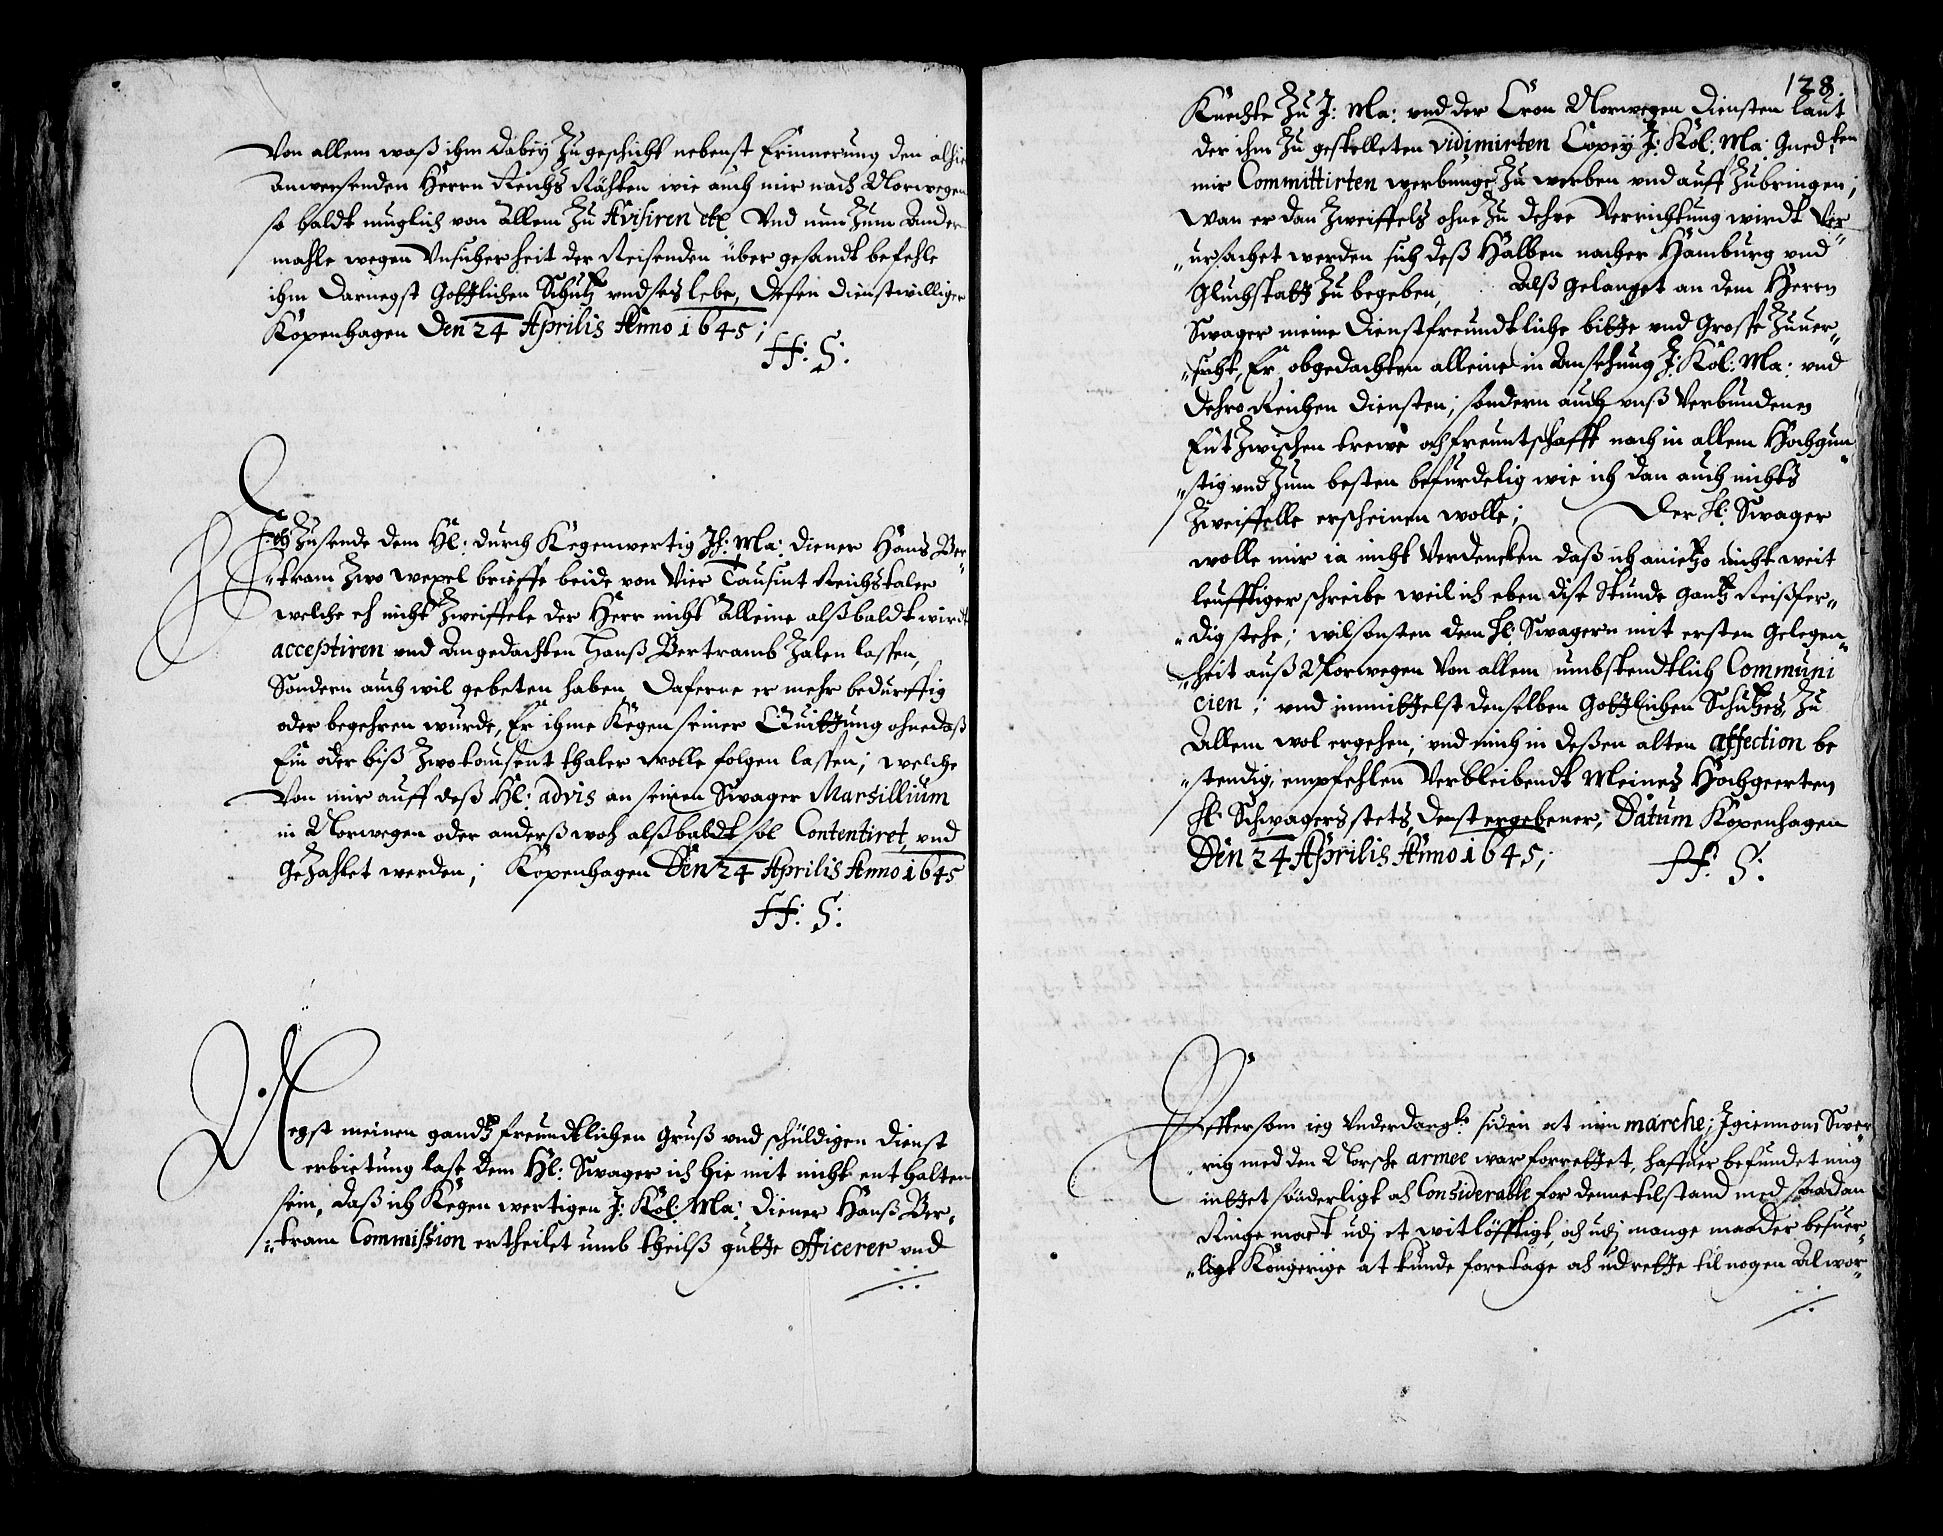 Von allem waß ihm dabey zugeschickt nebenst Erinnerung den alhie
anwesenden Herrn Reichs Rähten wie auch mir nach Norwegen
so baldt muglich von allem zu Avisiren etc Vnd nun zum Ander
mahle wegen Vnsicherheit der Reisenden über gesandt befehle
ihm darnegst Gottlichen Schutz Deßen dienstwilliger
Kopenhagen Den 24 Aprilis Anno 1645;
H: S:
Ich zusende dem Hl: durch Kegenwertig Ih: Ma: diener Hans Ber„
„tram zwo wexel brieffe beide von Vier Tausint Reichstaler
welche ich nicht zweiffele der Herr nicht alleine alßbaldt wirdt
acceptiren vnd angedachten Hanß Bertramb zalen lassen,
Sondern auch wil gebeten haben, daferne er mehr bedurfftig
oder begehren wurde, Er ihme Kegen seiner Quittung ohnedaß
Ein oder biß zwotausent thaler wolle folgen lassen; welche
Von mir auff deß Hl: advis an seinen Swager Marsillium
in Norwegen oder anderßwoh alßbaldt sol Contentiret, vnd
Gezahlet werden; Kopenhagen Den 24 Aprilis Anno 1645
H: S:
Negst meinen gantz freundtlichen Gruß vnd schüldigen dienst
erbietung lase dem Hl: Swager ich hie mit nicht enthalten
sein, daß ich Kegenwertigen J: Köl: Ma: diener Hanß Ber„
„tram Commission ertheilet umb theilß gutte officerer vnd
128.
Knechte zu J: Ma: vnd der Cron Norwegen diensten laut
der ihm zu gestelleten vidimirten Copey J: Köl: Ma: Gned:ten
mir Committirten werbunge zu werben vnd auff zubringen;
Wan er dan zweiffels ohne zu dehre Verrichtung wirdt Ver„
„ursachet werden sich deß Halben nacher Hamburg vnd
Gluchstatt zu begeben, Alß gelanget an dem Herrn
Swager meine dienstfreundtliche bitte vnd Grosse zuuer„
„sicht, Er obgedachten alleine in ansehung J: Köl: Ma: vnd
dehro Reichen diensten; sondern auch vnß Verbundenen
zwischen trewe och freuntschafft nach in allem Hochgun„
„stig vnd zum besten befurdelig wie ich dan auch nichts
zweiffelle erscheinen wolle; Der H: Swager
wolle mir ia nicht Verdencken daß ich anietzo nicht weit
leufftiger schreibe weil ich eben dise Stunde gantz Reißfer„
„dig stehe; wil sonsten dem H: Swagern mit ersten gelegen„
„heit auß Norwegen Von allem umbstendtlich Communi
cien; vnd inmittelst denselben Gottlichen Schutzes, zu
Allem wol ergehen, vnd mich in deßen alten affection be
„stendig, empfehlen Verbleibendt Meines Hochgeerten
H: Schwagers stets, denst ergebener, Datum Kopenhagen
Den 24 Aprilis Anno 1645;
H: S:
Effter som ieg Vnderdan siden at min marche; Igiennom Swer„
rig med den Norsche armee war forrettet, haffuer befundet mig
inttet sönderligt och Considerable for denne tilstand med saadan
Ringe mact udj et witlöfftigt, och udj mange maader besuer„
„ligt Köngerige at kunde foretage och udrette til nogen alwor„